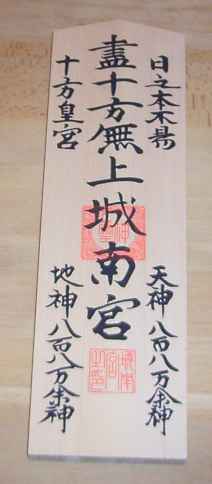 日之本不易
盡十方無上城南宮
十方皇宮
天神八百八万余神
地神八百八万余神